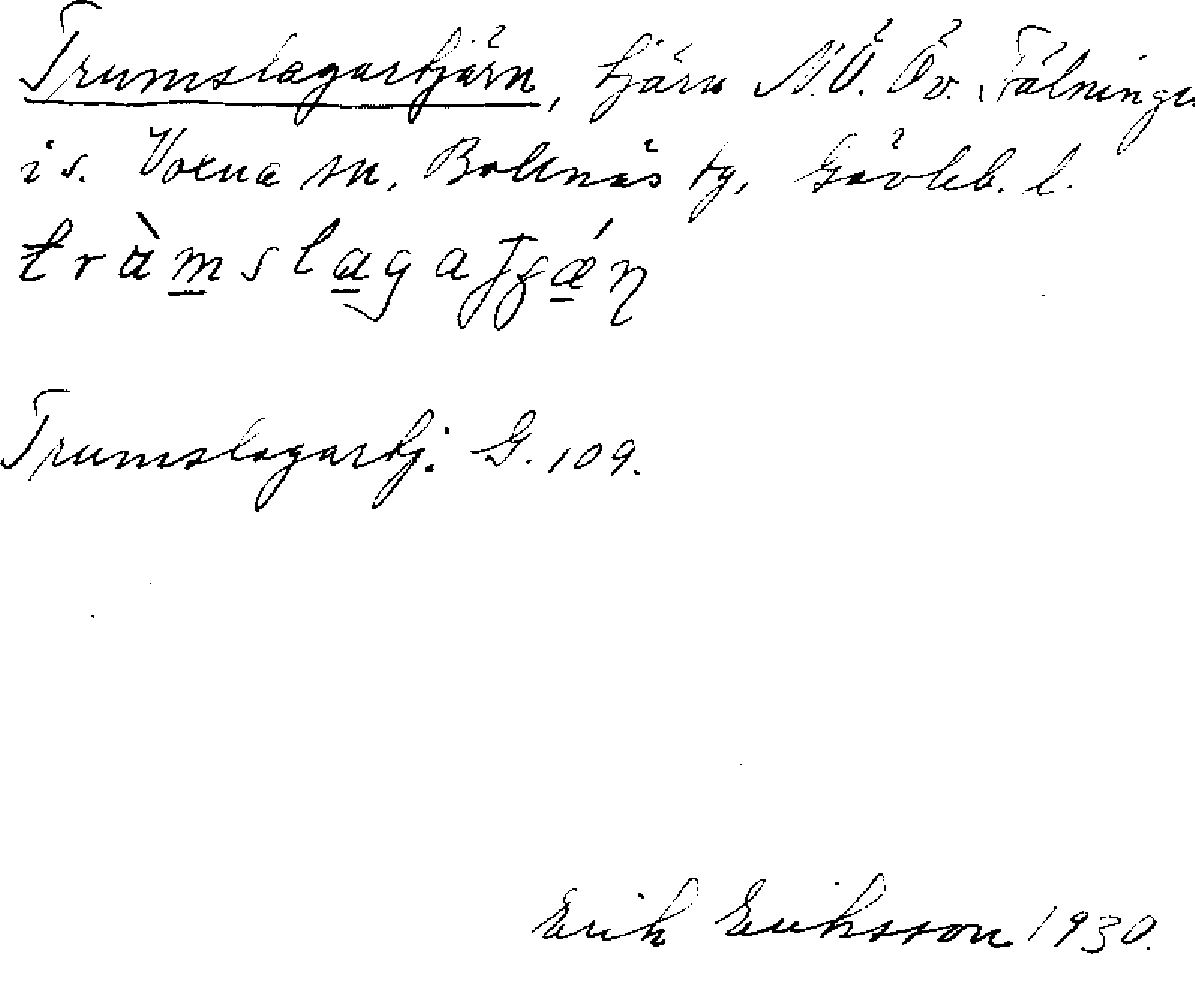 Trumslagartjärn, tjärn N.Ö. Öv. Fälningen
i s. Voxna sn, Bollnäs tg, Gävleb. l.
Trumslagartj. G. 109.
Erik Eriksson 1930.